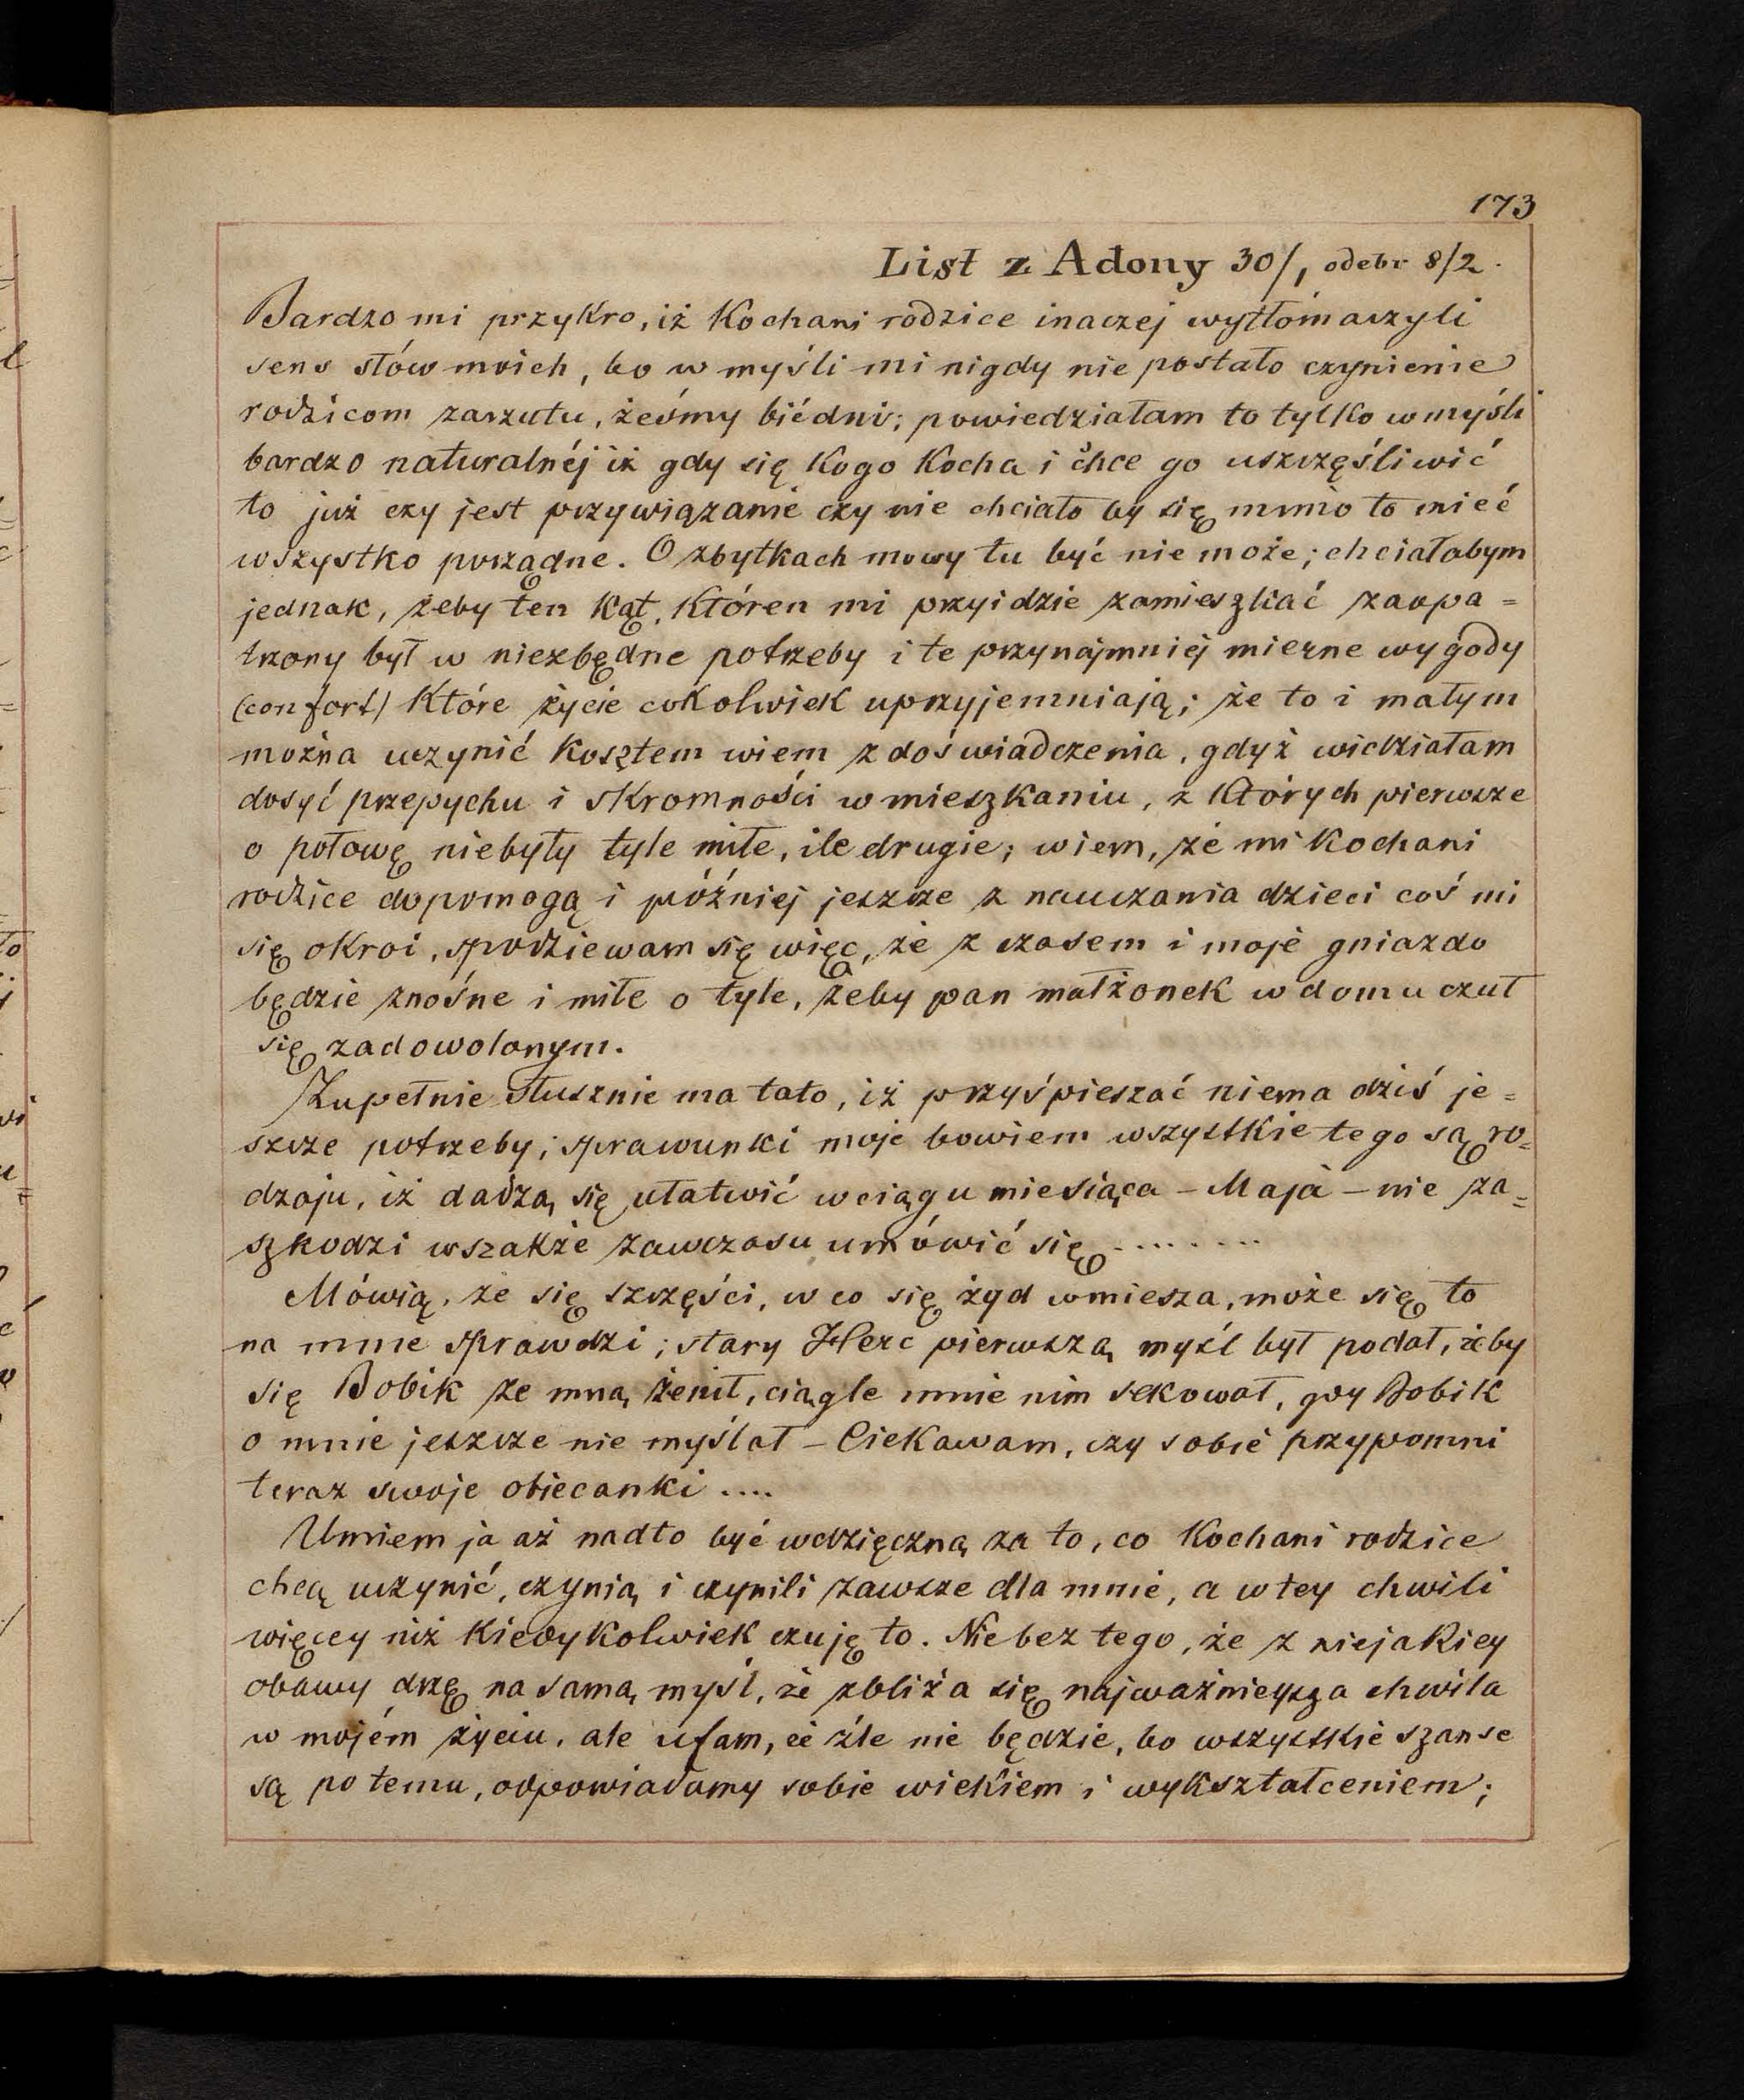 173
List z Adony 30/1 odebr 8/2.
Bardzo mi przykro, iż Kochani rodzice inaczej wytłómaczyli
sens słów moich, bo w myśli mi nigdy nie postało czynienie
rodzicom zarzutu, żeśmy biédni; powiedziałam to tylko w myśli
bardzo naturalnéj iż gdy się Kogo Kocha i chce go uszczęśliwić
to już czy jest przywiązanie czy nie chciało by się mimo to mieć
wszystko porządne. O zbytkach mowy tu być nie może; chciałabym
jednak, żeby ten kąt, któren mi przyidzie zamieszkać zaopa=
trzony był w niezbędne potrzeby i te przynajmniej mierne wygody
(confort) Które życie cokolwiek uprzyjemniają; że to i małym
można uczynić kosztem wiem z doświadczenia, gdyż widziałam
dosyć przepychu i skromności w mieszkaniu, z których pierwsze
o połowę niebyły tyle miłe, ile drugie; wiem, że mi Kochani
rodzice dopomogą i później jeszcze z nauczania dzieci coś mi
się okroi, spodziewam się więc, że z czasem i moje gniazdo
będzie znośne i miłe o tyle, żeby pan małżonek w domu czuł
się zadowolonym.
Zupełnie słusznie ma tato, iż przyśpieszać niema dziś je=
szcze potrzeby; sprawunki moje bowiem wszystkie tego są ro=
dzaju, iż dadzą się ułatwić w ciągu miesiąca – Maja – nie za=
szkodzi wszakże zawczasu umówić się ........
Mówią, że się szczęści, w co się żyd wmiesza, może się to
na mnie sprawdzi; stary Herc pierwszą myśl był podał, żeby
się Bobik ze mną żenił, ciągle mnie nim sekował, gdy Bobik
o mnie jeszcze nie myślał – Ciekawam, czy sobie przypomni
teraz swoje obiecanki ....
Umiem ja aż nadto być wdzięczną za to, co Kochani rodzice
chcą uczynić, czynią i czynili zawsze dla mnie, a w tey chwili
więcey niż kiedykolwiek czuję to. Nie bez tego, że z niejakiey
obawy drżę na samą myśl, że zbliża się najważnieysza chwila
w mojém życiu, ale ufam, że źle nie będzie, bo wszystkie szanse
są po temu, odpowiadamy sobie wiekiem i wykształceniem;